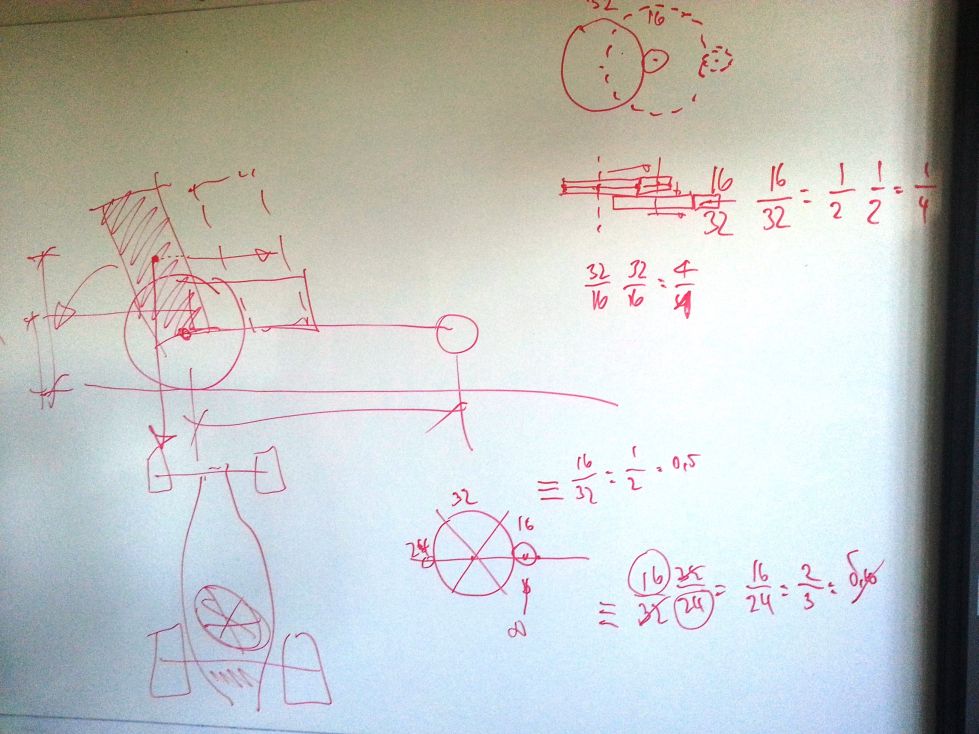 32
16
16/32 16/32 = 1/2 1/2 = 1/4
32/16 32/16 = 4/
≡ 16/32 = 1/2 = 0,5
32
16
24
≡ 16/32 32/24 = 16/24 = 2/3 =